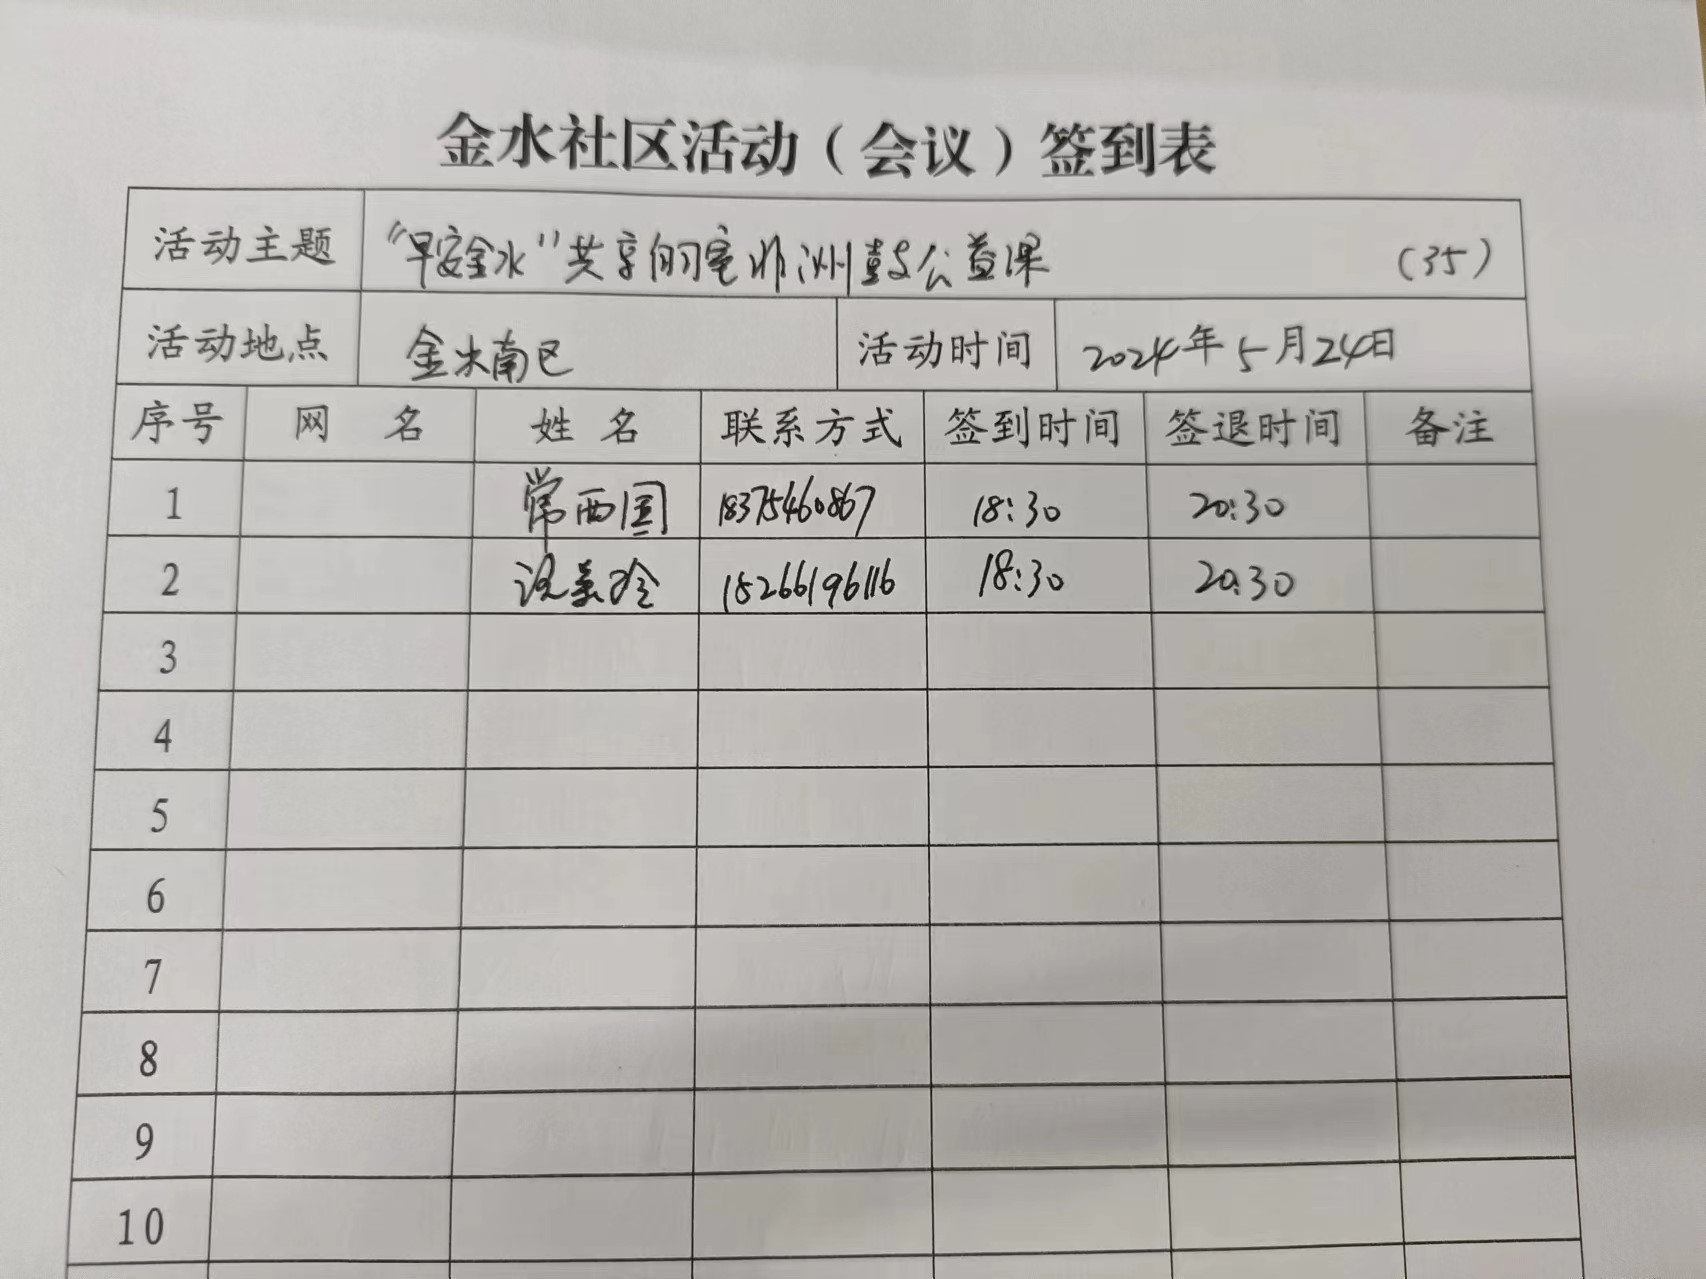 金水社区活动（会议）签到表
活动主题 “早安金水”共享的家非洲鼓公益课 （35）
活动地点 金水南区 活动时间 2024年5月24日
序号 网 名 姓 名 联系方式 签到时间 签退时间 备注
1 常西国 18375460867 18:30 20:30
2 15266196116 18:30 20:30
3
4
5
6
7
8
9
10